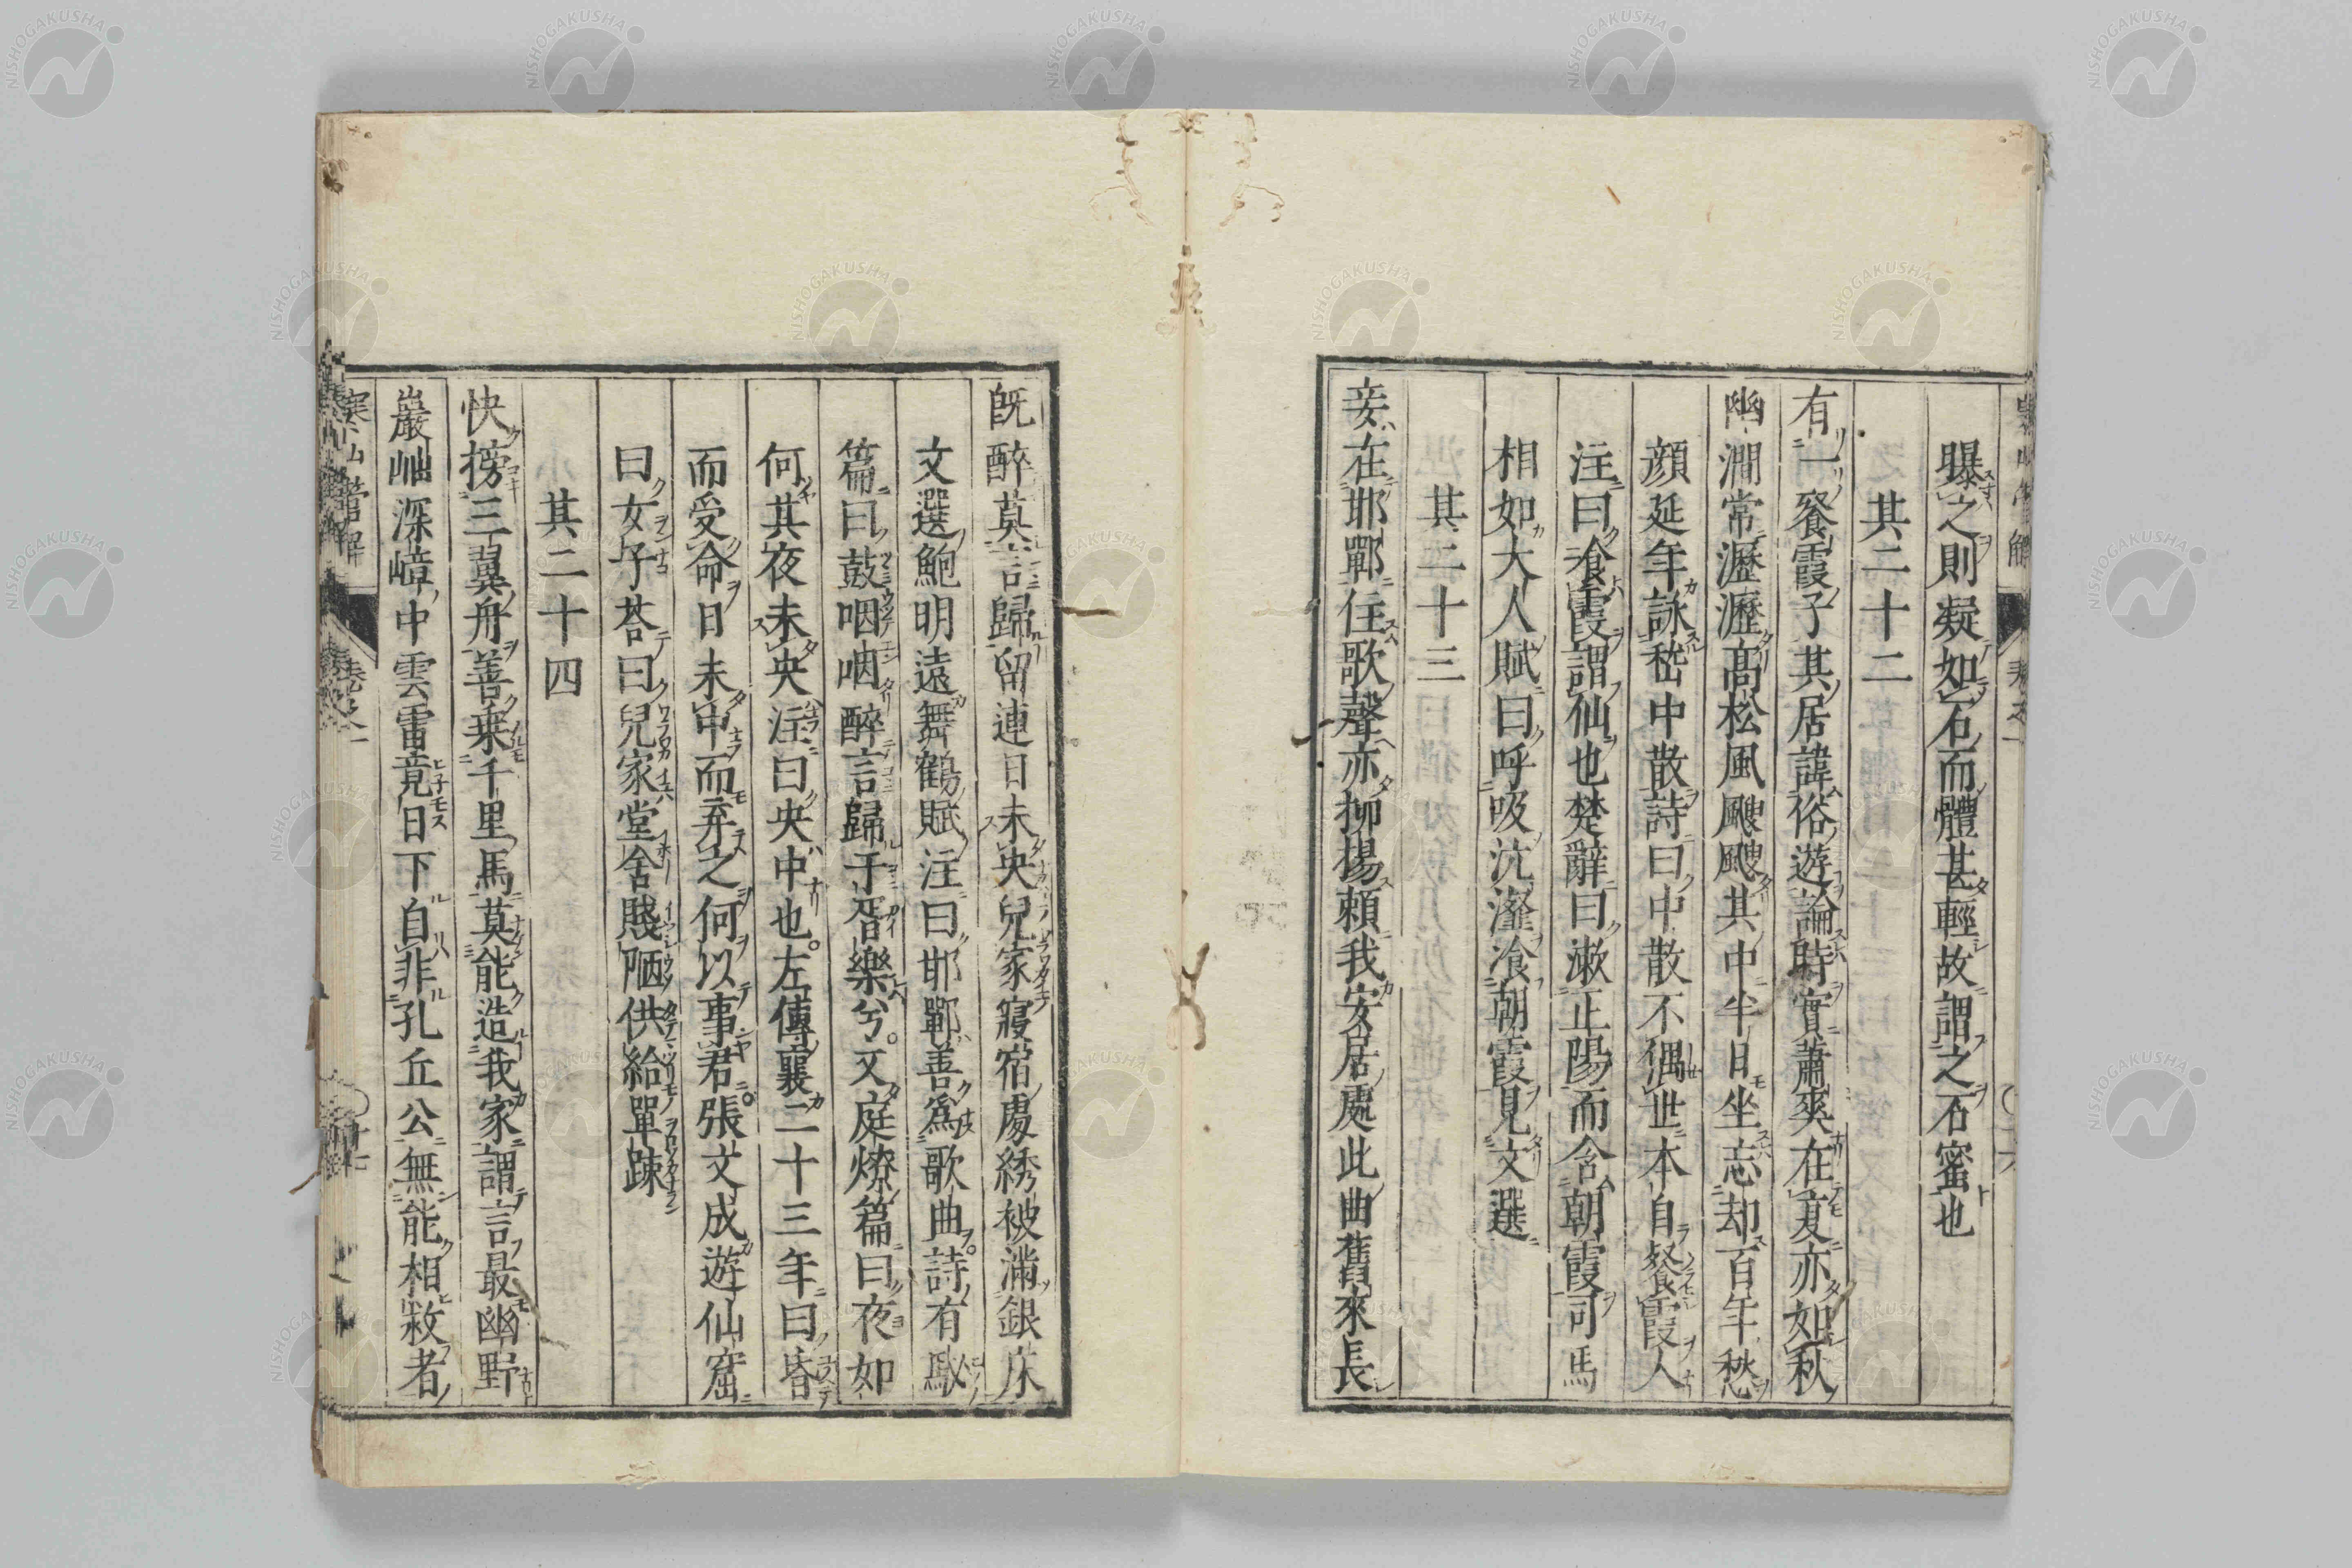 曝之則凝如石而體甚輕故謂之石蜜也
其二十二
有一餐霞子其居諱俗遊論時實蕭爽在夏亦如秋
幽澗常瀝瀝高松風颼颼其中半日坐忘却百年愁
顔延年詠嵇中散詩曰中散不偶世本自餐霞人
注曰飡霞謂仙也楚辭曰漱正陽而含朝霞司馬
相如大人賦曰呼吸沆瀣飡朝霞見文選
其二十三
妾在邯鄲住歌聲亦抑揚頼我安居處此曲舊來長
既醉莫言歸留連日未央兒家寢宿處綉被滿銀床
文選鮑明遠舞鶴賦注曰邯鄲善爲歌曲詩有駜
篇曰鼓咽咽醉言歸于胥樂兮又庭燎篇曰夜如
何其夜未央注曰央中也左傳襄二十三年曰昏
而受命日未中而弃之何以事君張文成遊仙窟
曰女子荅曰兒家堂舍賤陋供給單疎
其二十四
快搒三翼舟善乗千里馬莫能造我家謂言最幽野
巖岫深嶂中雲雷竟日下自非孔丘公無能相救者
寒山管解 卷之一